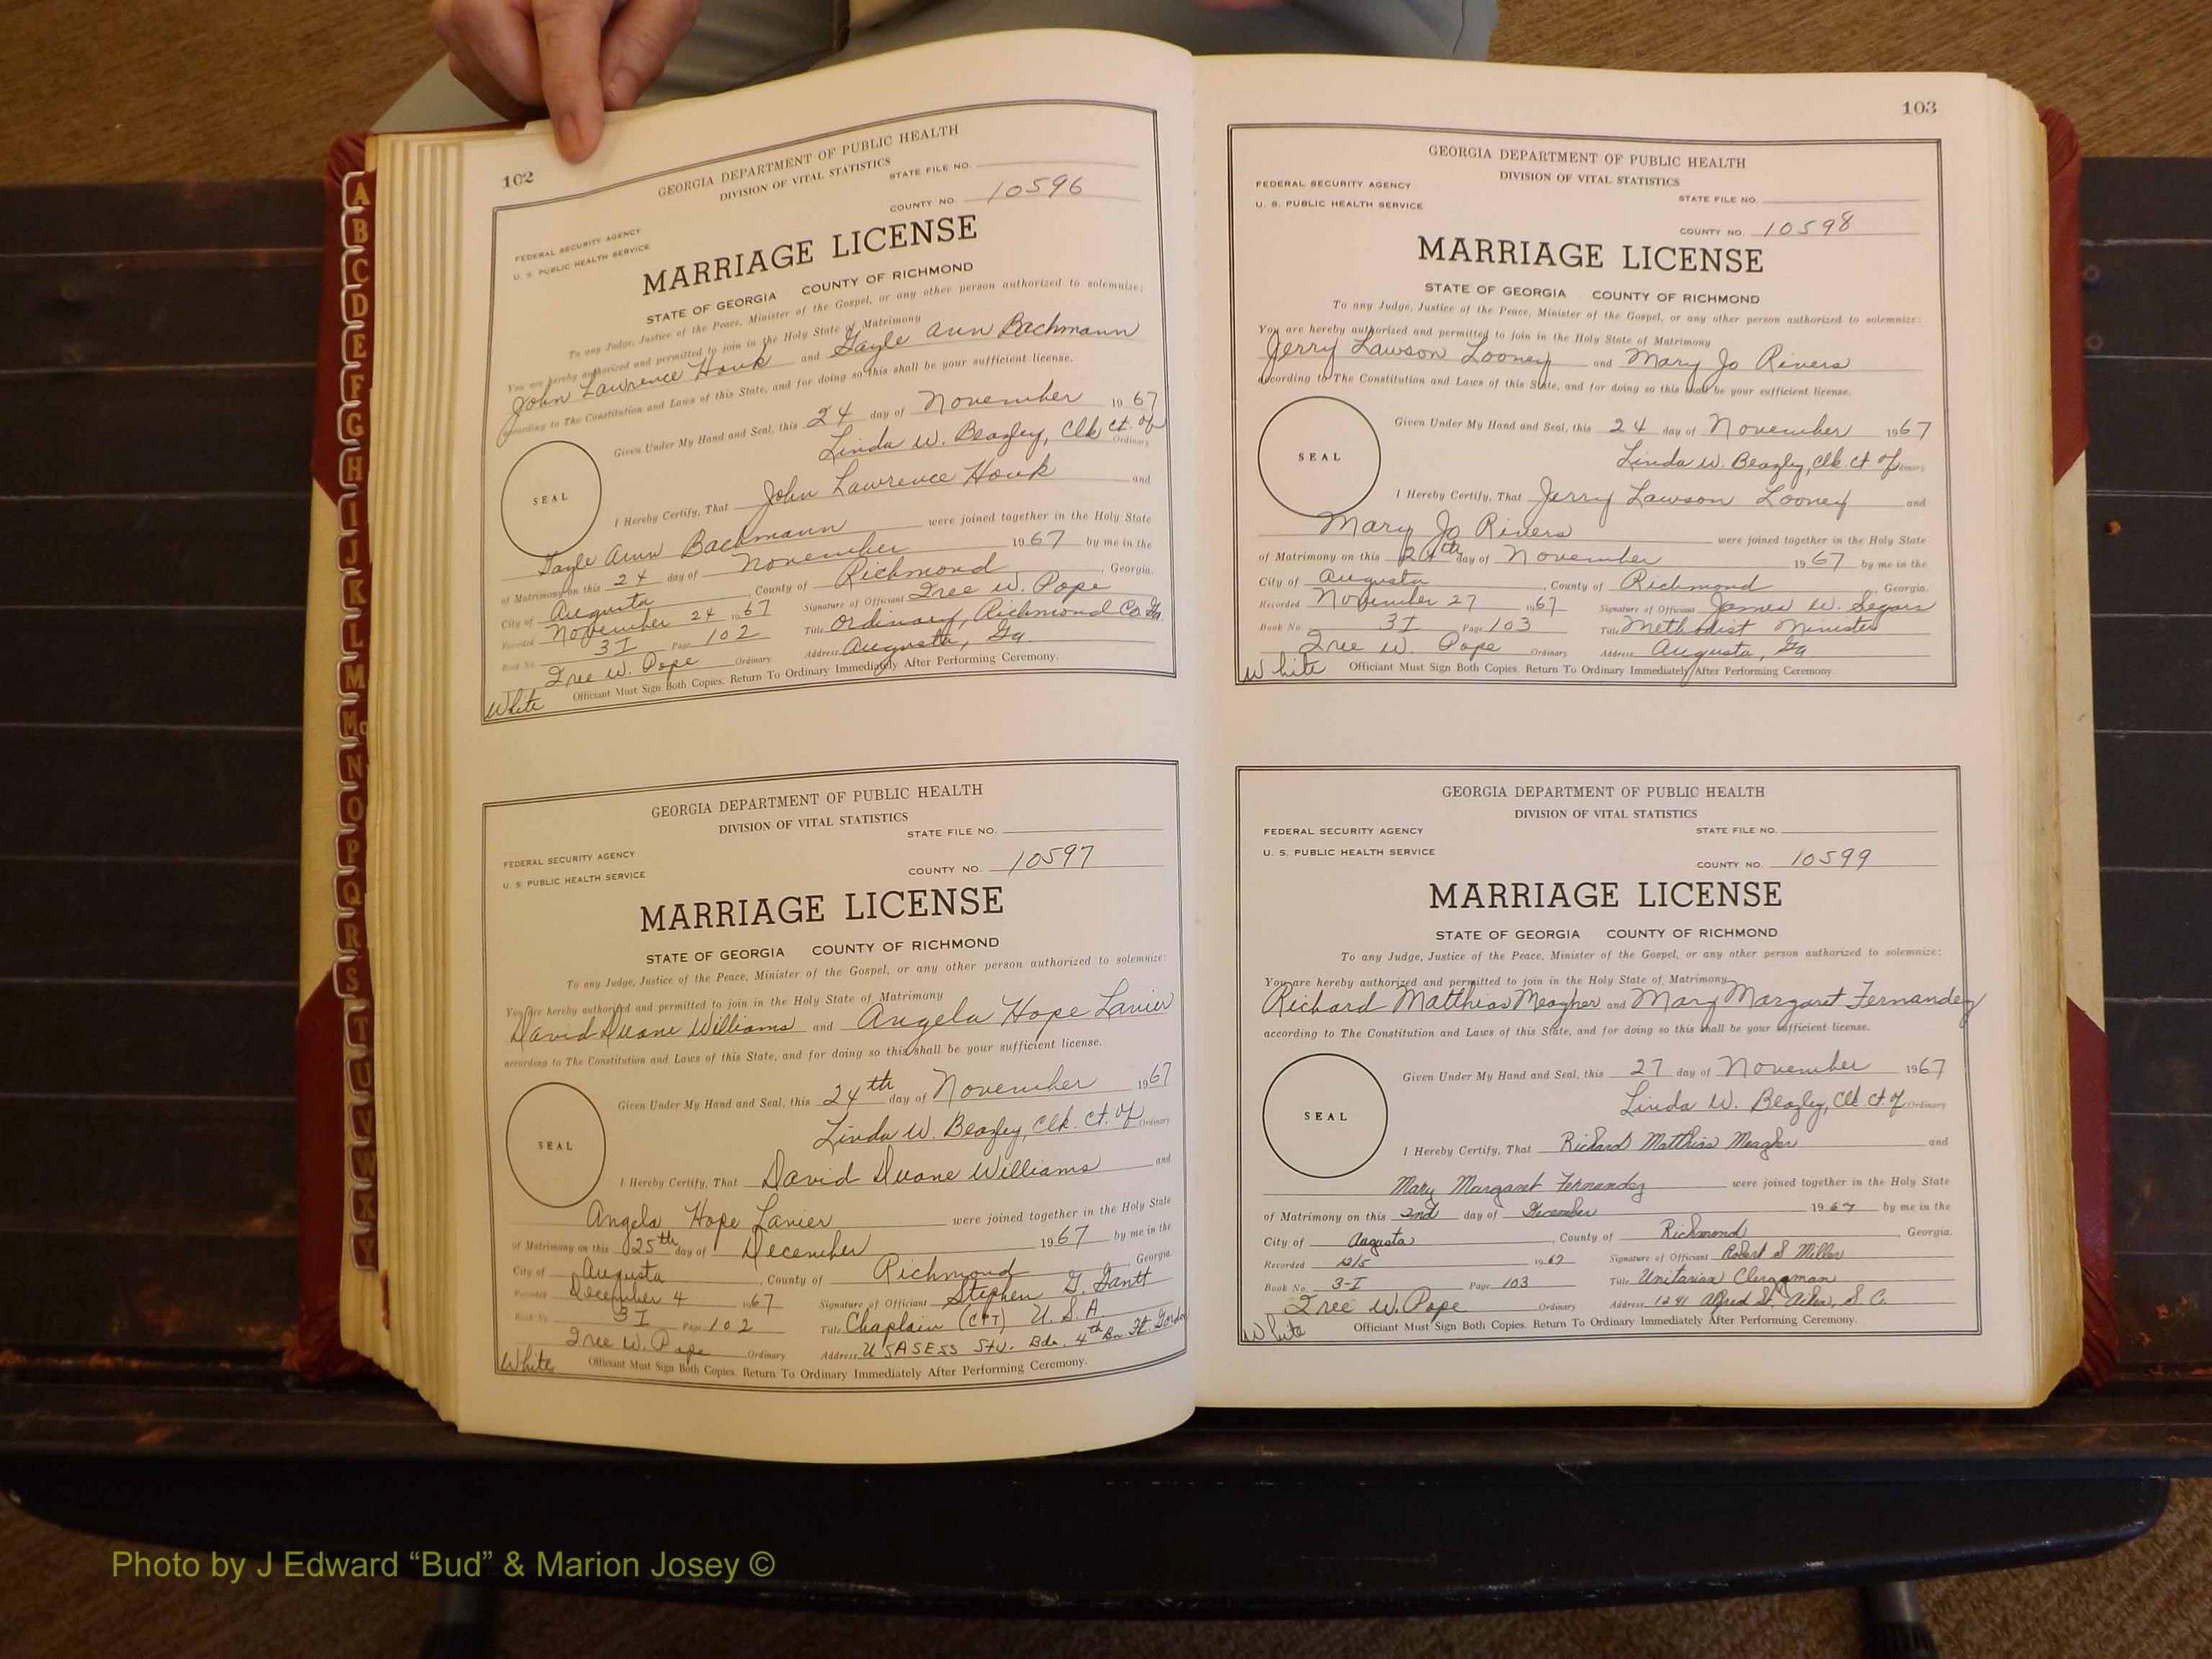 A
B
C
D
E
F
G
H
I
J
K
L
M
Mc
N
O
P
Q
R
S
T
U
V
W
X
Y
102
GEORGIA DEPARTMENT OF PUBLIC HEALTH
DIVISION OF VITAL STATISTICS
STATE FILE NO.
COUNTY NO. 10596
FEDERAL SECURITY AGENCY
U. S. PUBLIC HEALTH SERVICE
MARRIAGE LICENSE
STATE OF GEORGIA COUNTY OF RICHMOND
To any Judge, Justice of the Peace, Minister of the Gospel, or any other person authorized to solemnize:
You are hereby authorized and permitted to join in the Holy State of Matrimony
John Lawrence Houk and Gayle Ann Bachmann
according to The Constitution and Laws of this State, and for doing so this shall be your sufficient license.
Given Under My Hand and Seal, this 24 day of November 1967
Linda W. Beazley, Clk Ct. of Ordinary
SEAL
I Hereby Certify, That John Lawrence Houk and
Gayle Ann Bachmann were joined together in the Holy State
of Matrimony on this 24 day of November 1967 by me in the
City of Augusta, County of Richmond, Georgia.
Recorded November 24 1967 Signature of Officiant Iree W. Pope
Book No. 3I Page 102 Title Ordinary, Richmond Co. Ga.
Iree W. Pope Ordinary Address Augusta, Ga
White Officiant Must Sign Both Copies. Return To Ordinary Immediately After Performing Ceremony.
GEORGIA DEPARTMENT OF PUBLIC HEALTH
DIVISION OF VITAL STATISTICS
STATE FILE NO.
FEDERAL SECURITY AGENCY
U. S. PUBLIC HEALTH SERVICE
COUNTY NO. 10597
MARRIAGE LICENSE
STATE OF GEORGIA COUNTY OF RICHMOND
To any Judge, Justice of the Peace, Minister of the Gospel, or any other person authorized to solemnize:
You are hereby authorized and permitted to join in the Holy State of Matrimony
David Duane Williams and Angela Hope Lanier
according to The Constitution and Laws of this State, and for doing so this shall be your sufficient license.
Given Under My Hand and Seal, this 24th day of November 1967
Linda W. Beazley, Clk. Ct. of Ordinary
SEAL
I Hereby Certify, That David Duane Williams and
Angela Hope Lanier were joined together in the Holy State
of Matrimony on this 25th day of December 1967 by me in the
City of Augusta, County of Richmond, Georgia.
Recorded December 4 1967 Signature of Officiant Stephen G. Gantt
Book No. 3I Page 102 Title Chaplain (CPT) U.S.A
Iree W. Pope Ordinary Address USASESS Stu. Bde. 4th Bn Ft. Gordon
White Officiant Must Sign Both Copies. Return To Ordinary Immediately After Performing Ceremony.
103
GEORGIA DEPARTMENT OF PUBLIC HEALTH
DIVISION OF VITAL STATISTICS
FEDERAL SECURITY AGENCY
U. S. PUBLIC HEALTH SERVICE
STATE FILE NO.
COUNTY NO. 10598
MARRIAGE LICENSE
STATE OF GEORGIA COUNTY OF RICHMOND
To any Judge, Justice of the Peace, Minister of the Gospel, or any other person authorized to solemnize:
You are hereby authorized and permitted to join in the Holy State of Matrimony
Jerry Lawson Looney and Mary Jo Rivers
according to The Constitution and Laws of this State, and for doing so this shall be your sufficient license.
Given Under My Hand and Seal, this 24 day of November 1967
Linda W. Beazley, Clk. Ct. of Ordinary
SEAL
I Hereby Certify, That Jerry Lawson Looney and
Mary Jo Rivers were joined together in the Holy State
of Matrimony on this 24th day of November 1967 by me in the
City of Augusta, County of Richmond, Georgia.
Recorded November 27 1967 Signature of Officiant James W. Segars
Book No. 3I Page 103 Title Methodist Minister
Iree W. Pope Ordinary Address Augusta, Ga
White Officiant Must Sign Both Copies. Return To Ordinary Immediately After Performing Ceremony.
GEORGIA DEPARTMENT OF PUBLIC HEALTH
DIVISION OF VITAL STATISTICS
FEDERAL SECURITY AGENCY
U. S. PUBLIC HEALTH SERVICE
STATE FILE NO.
COUNTY NO. 10599
MARRIAGE LICENSE
STATE OF GEORGIA COUNTY OF RICHMOND
To any Judge, Justice of the Peace, Minister of the Gospel, or any other person authorized to solemnize:
You are hereby authorized and permitted to join in the Holy State of Matrimony
Richard Matthias Meagher and Mary Margaret Fernandez
according to The Constitution and Laws of this State, and for doing so this shall be your sufficient license.
Given Under My Hand and Seal, this 27 day of November 1967
Linda W. Beazley, Clk Ct. of Ordinary
SEAL
I Hereby Certify, That Richard Matthias Meagher and
Mary Margaret Fernandez were joined together in the Holy State
of Matrimony on this 2nd day of December 1967 by me in the
City of Augusta, County of Richmond, Georgia.
Recorded 12/5 1967 Signature of Officiant Robert S Miller
Book No. 3-I Page 103 Title Unitarian Clergyman
Iree W. Pope Ordinary Address 1241 Alfred St. Aiken, S.C.
White Officiant Must Sign Both Copies. Return To Ordinary Immediately After Performing Ceremony.
Photo by J Edward “Bud” & Marion Josey ©